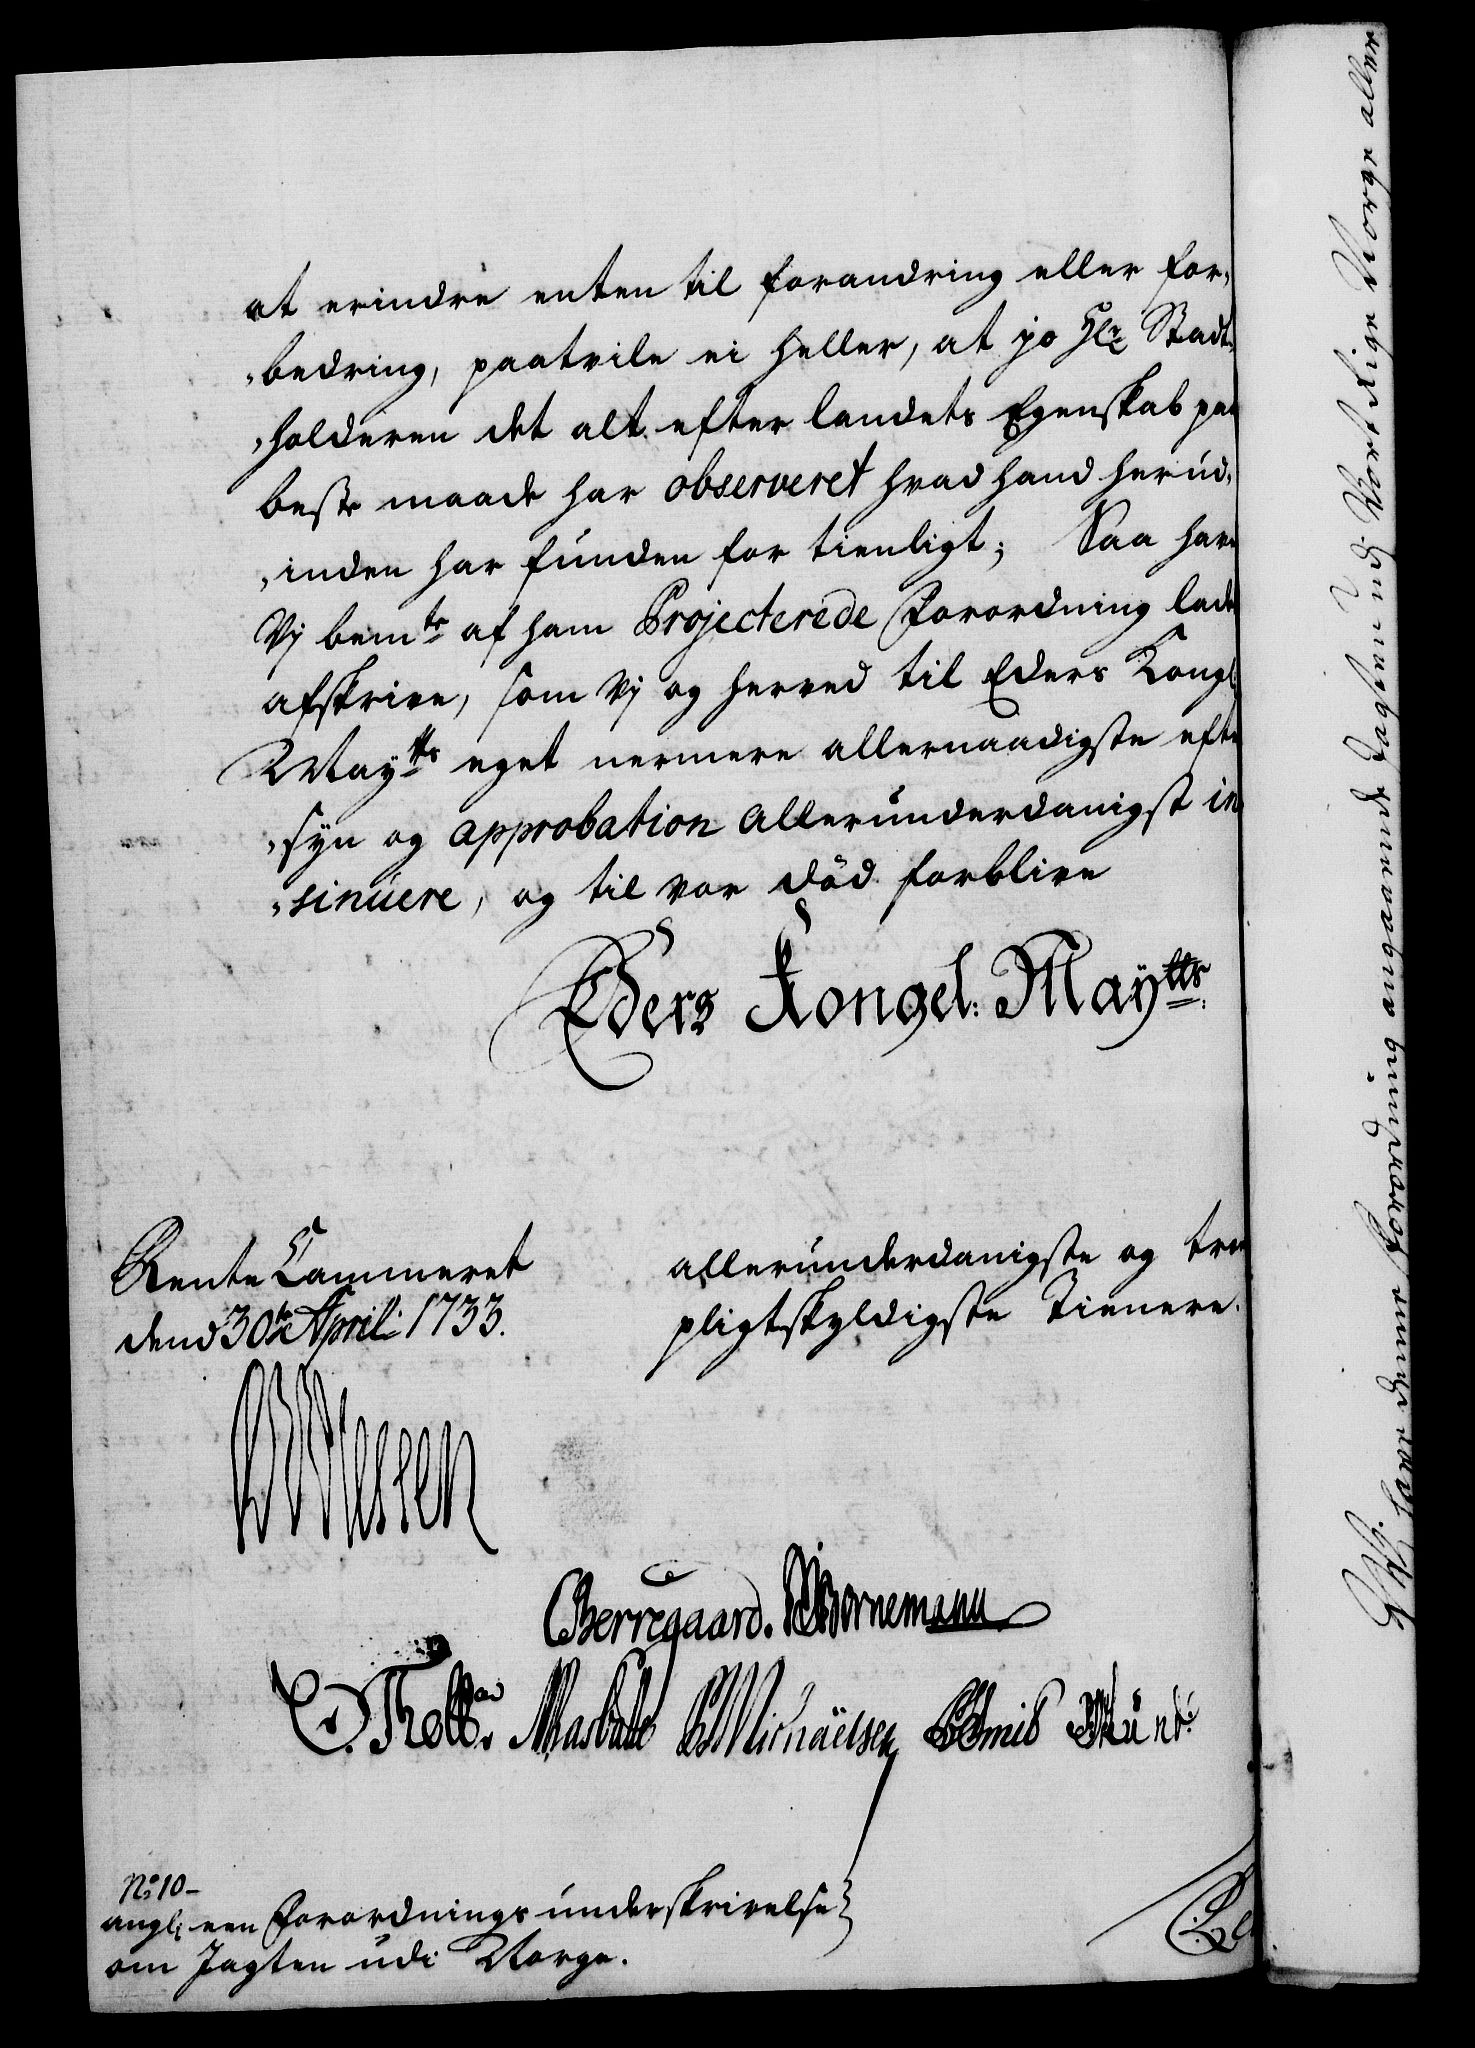 at erindre enten til forandring eller for,
,bedring, paatvile ei heller, at jo Hr: Stadt,
,holderen det alt efter landets Egenskab paa
beste maade har observeret hvad hand herud,
,inden har funden for tienligt; Saa have
Vj bemte af ham Projecterede Forordning lade
afskrive, som Vj og herved til Eders Kongl:
Maytts eget nermere allernaadigste efter
,syn og approbation allerunderdanigst in
,sinuere, og til vor död forblive
Eders Kongel: Maytts:
Rente Cammeret
dend 30te April: 1733.
allerunderdanigste og troe
pligtskyldigste Tienere.
Berregaard. Bornemann
Michaelsen
No 10-
angl: een Forordnings underskrivelse
om Jagten udi Norge.
Vj have denne Forordning angaaende Jagten udj Vort Rige Norge aller